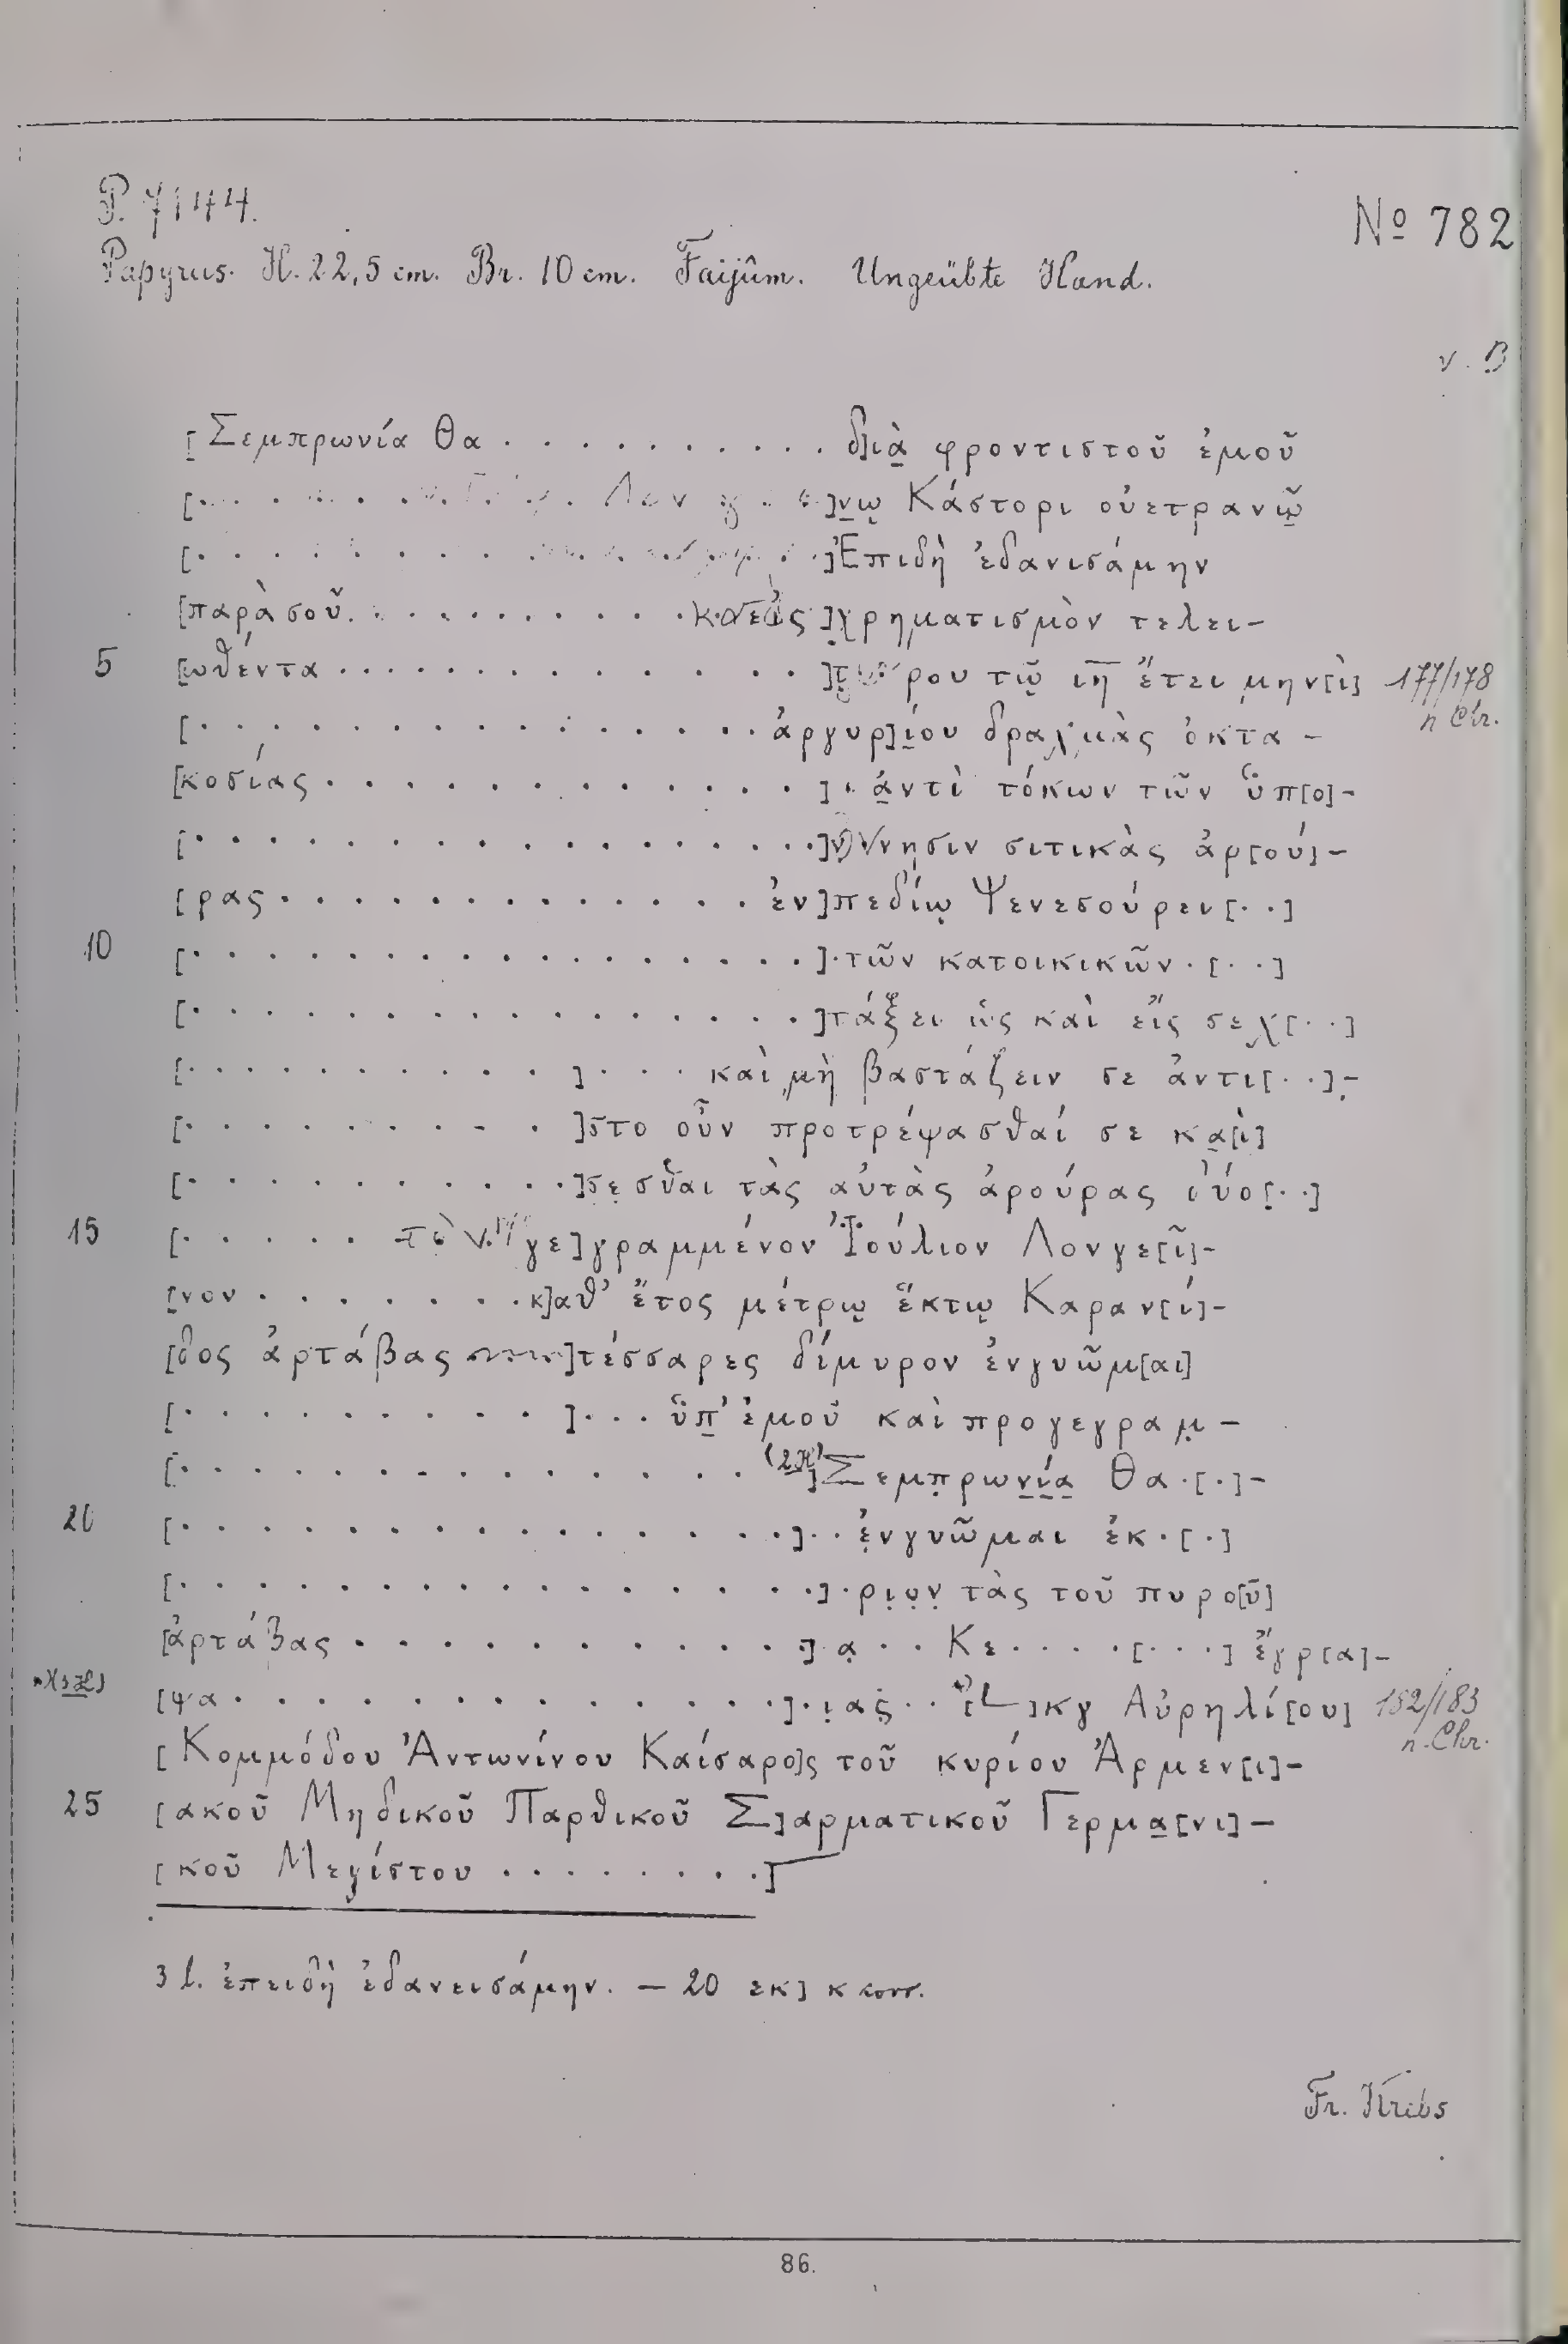 P. 7144.
No 782
Papyrus. H. 22,5 cm. Br. 10 cm. Faijûm. Ungeübte Hand.
v. B
[Σεμπρωνία Θα . . . . . . . . . . δ]ιὰ̣ φροντιστοῦ ἐμοῦ
[. . . . . . . Λον γ . . ]ν̣ῳ Κάστορι οὐετρανῷ̣
[. . . . . . . . . . . ]Ἐπιδὴ ἐδανισάμην
[παρὰ σοῦ. . . . . . . . . . ]χ̣ρηματισμὸν τελει-
5 [ωθέντα . . . . . . . . . . . . ] ρου τῷ ιη̅ ἔτει μην[ὶ] 177/178 n Chr.
[. . . . . . . . . . . . . . . ἀργυρ]ί̣ου δραχμὰς ὀκτα-
[κοσίας . . . . . . . . . . . . . ] . ἀ̣ντὶ τόκων τῶν ὑπ[ο]-
[. . . . . . . . . . . . . . . . . ] νησιν σιτικὰς ἀρ[ού]-
[ρας . . . . . . . . . . . . . ἐν]πεδίῳ Ψενεσούρειν[. .]
10 [. . . . . . . . . . . . . . . . . ]. τῶν κατοικικῶν . [. .]
[. . . . . . . . . . . . . . . . . ]τάξει ὡς καὶ εἴς σεχ[. .]
[. . . . . . . . . . ] . . . καὶ μὴ βαστάζειν σε ἀντι[. .]-
[. . . . . . . . . . ]στο οὖν προτρέψασθαί σε κα̣[ὶ]
[. . . . . . . . . . . ]σ̣ε̣σθαι τὰς αὐτὰς ἀρούρας [. .]
15 [. . . . . γε]γραμμένον Ἰούλιον Λονγε[ῖ]-
[νον . . . . . . . . κ]αθ’ ἔτος μέτρῳ ἕκτῳ Καραν[ί]-
[δος ἀρτάβας ]τέσσαρες δίμυρον ἐνγυῶμ[αι]
[. . . . . . . . . . ]. . . ὑπ̣’ ἐμοῦ καὶ προγεγραμ̣-
[. . . . . . . . . . . . . . . (2.H) ]Σεμπ̣ρων̣ί̣α̣ Θα . [.]-
20 [. . . . . . . . . . . . . . . . ]. . ἐ̣νγυῶμαι ἐκ . [.]
[. . . . . . . . . . . . . . . . . ]. ρι̣ο̣ν̣ τὰς τοῦ πυρο[ῦ]
[ἀρτάβας . . . . . . . . . . . . ] α̣ . . Κε . . . . . [. . .] ἔγρ[α]-
[ψα . . . . . . . . . . . . . . . ]. ι̣ας̣ . . [L]κγ Αὐρηλί[ου] 182/183 n. Chr.
[Κομμόδου Ἀντωνίνου Καίσαρο]ς τοῦ κυρίου Ἀρμεν[ι]-
25 [ακοῦ Μηδικοῦ Παρθικοῦ Σ]αρματικοῦ Γερμα̣[νι]-
[κοῦ Μεγίστου . . . . . . . . ]
3 l. ἐπειδὴ ἐδανεισάμην. — 20 εκ] κ corr.
Fr. Krebs
86.